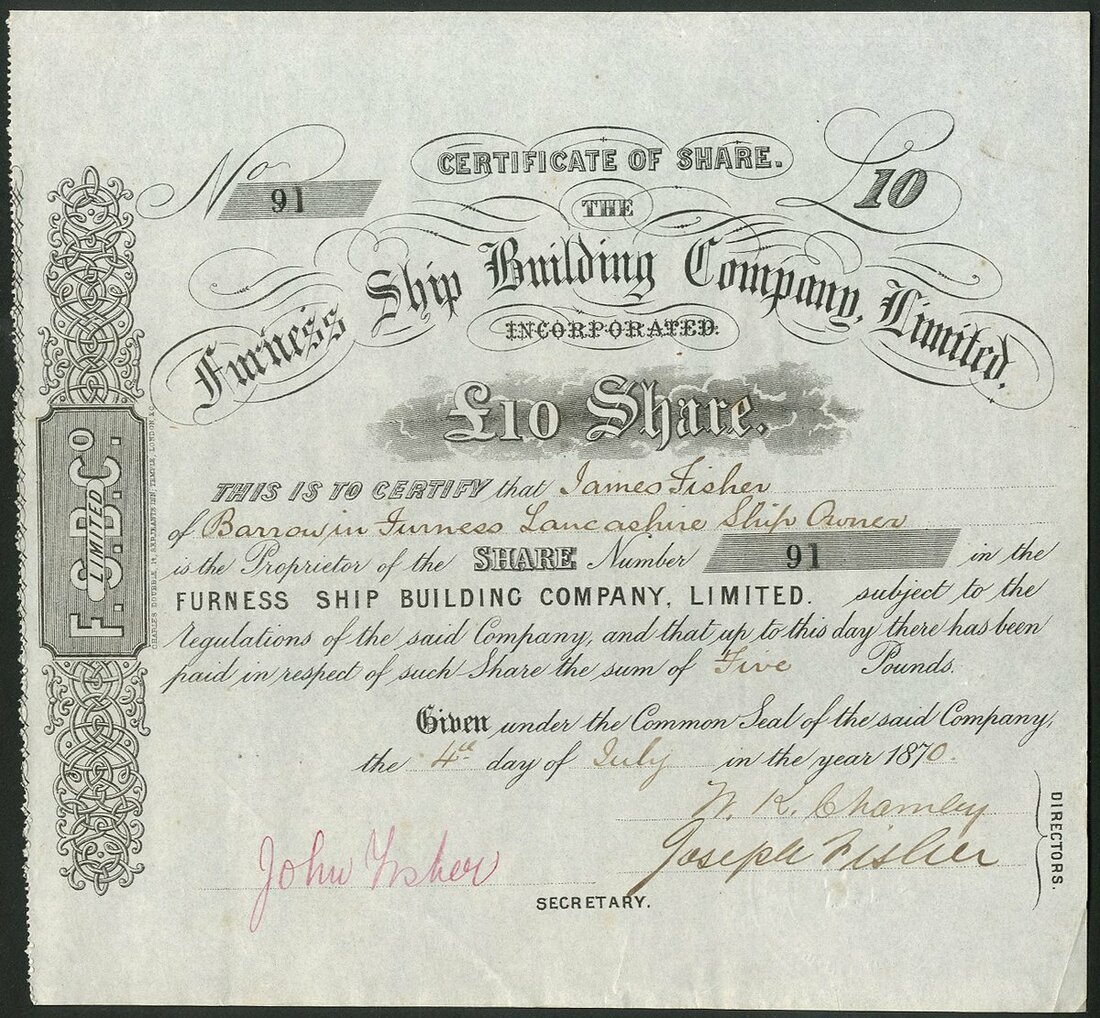 No 91
CERTIFICATE OF SHARE.
£10
THE
Furness Ship Building Company, Limited.
INCORPORATED.
£10 Share.
THIS IS TO CERTIFY that James Fisher
of Barrow in Furness Lancashire Ship Owner
is the Proprietor of the SHARE Number 91 in the
FURNESS SHIP BUILDING COMPANY, LIMITED. subject to the
regulations of the said Company, and that up to this day there has been
paid in respect of such Share the sum of Five Pounds.
Given under the Common Seal of the said Company,
the 4th day of July in the year 1870.
W. K. Charnley
Joseph Fisher
DIRECTORS.
John Fisher
SECRETARY.
F.S.B.Co.
LIMITED
CHARLES SERJEANTS INN, TEMPLE, LONDON